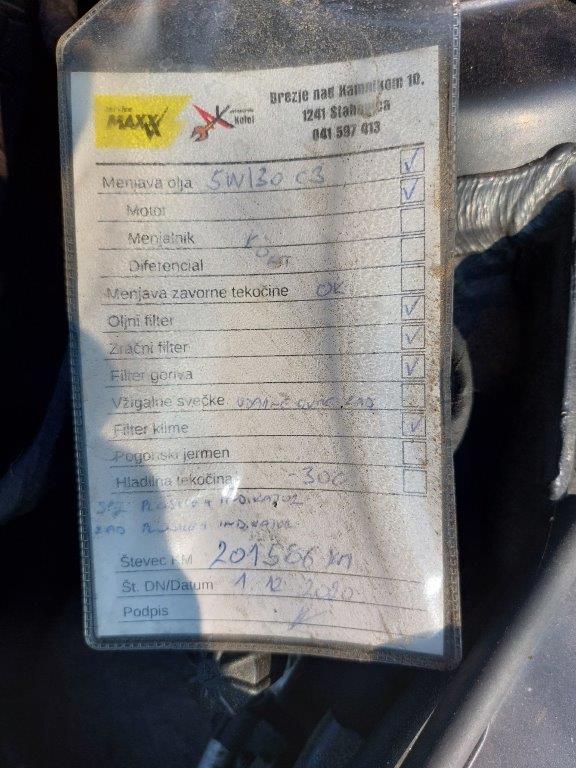 MAXX
Kotel
Brezje nad Kamnikom 10.
1241 Stahovica
041 597 413
Menjava olja 5W/30 C3
Motor
Menjalnik
Diferencial
Menjava zavorne tekočine OK
Oljni filter
Zračni filter
Filter goriva
Vžigalne svečke
Filter klime
Pogonski jermen
Hladilna tekočina -300
INDIKATOR
ZAD INDIKATOR
Števec KM 201586 km
Št. DN/Datum 1.12 2020
Podpis